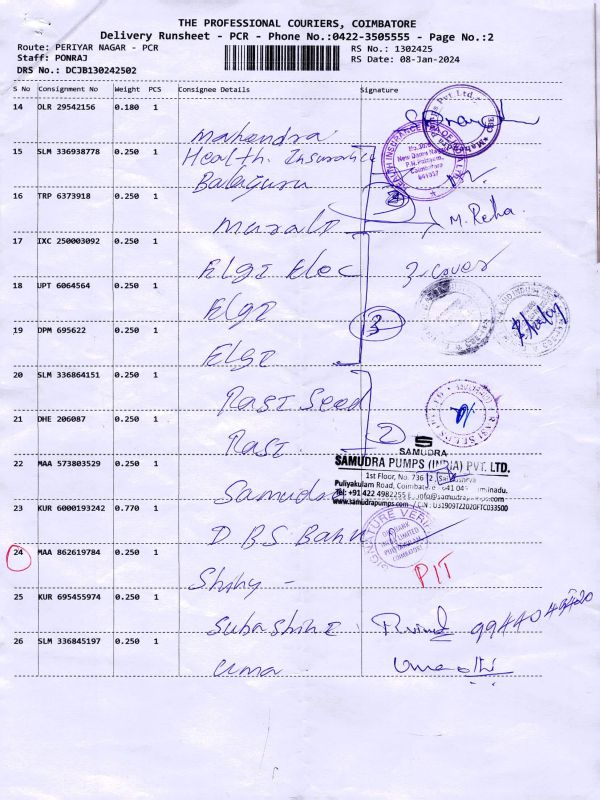 THE PROFESSIONAL COURIERS, COIMBATORE
Delivery Runsheet - PCR - Phone No.:0422-3505555 - Page No.:2
Route: PERIYAR NAGAR - PCR
RS No.: 1302425
Staff: PONRAJ
RS Date: 08-Jan-2024
DRS No.: DCJB130242502
S No Consignment No Weight PCS Consignee Details Signature
14 OLR 29542156 0.180 1
Mahendra
15 SLM 336938778 0.250 1
Health. Insurance
Balaguru
16 TRP 6373918 0.250 1
Murali
M. Reha.
17 IXC 250003092 0.250 1
ELGI Elec 3-cover
18 UPT 6064564 0.250 1
ELGI
3
19 DPM 695622 0.250 1
ELGI
20 SLM 336864151 0.250 1
Rasi Seed
21 DHE 206087 0.250 1
Rasi
2
SAMUDRA
22 MAA 573803529 0.250 1
SAMUDRA PUMPS (INDIA) PVT. LTD.
1st Floor, No. 736
Puliyakulam Road, Coimbatore
Tel: +91 422 4982255
www.samudrapumps.com
Samudra
23 KUR 6000193242 0.770 1
SIGNATURE VERIFIED
D.B.S. Bank
24 MAA 862619784 0.250 1
PIT
25 KUR 695455974 0.250 1
99440 49420
26 SLM 336845197 0.250 1
uma